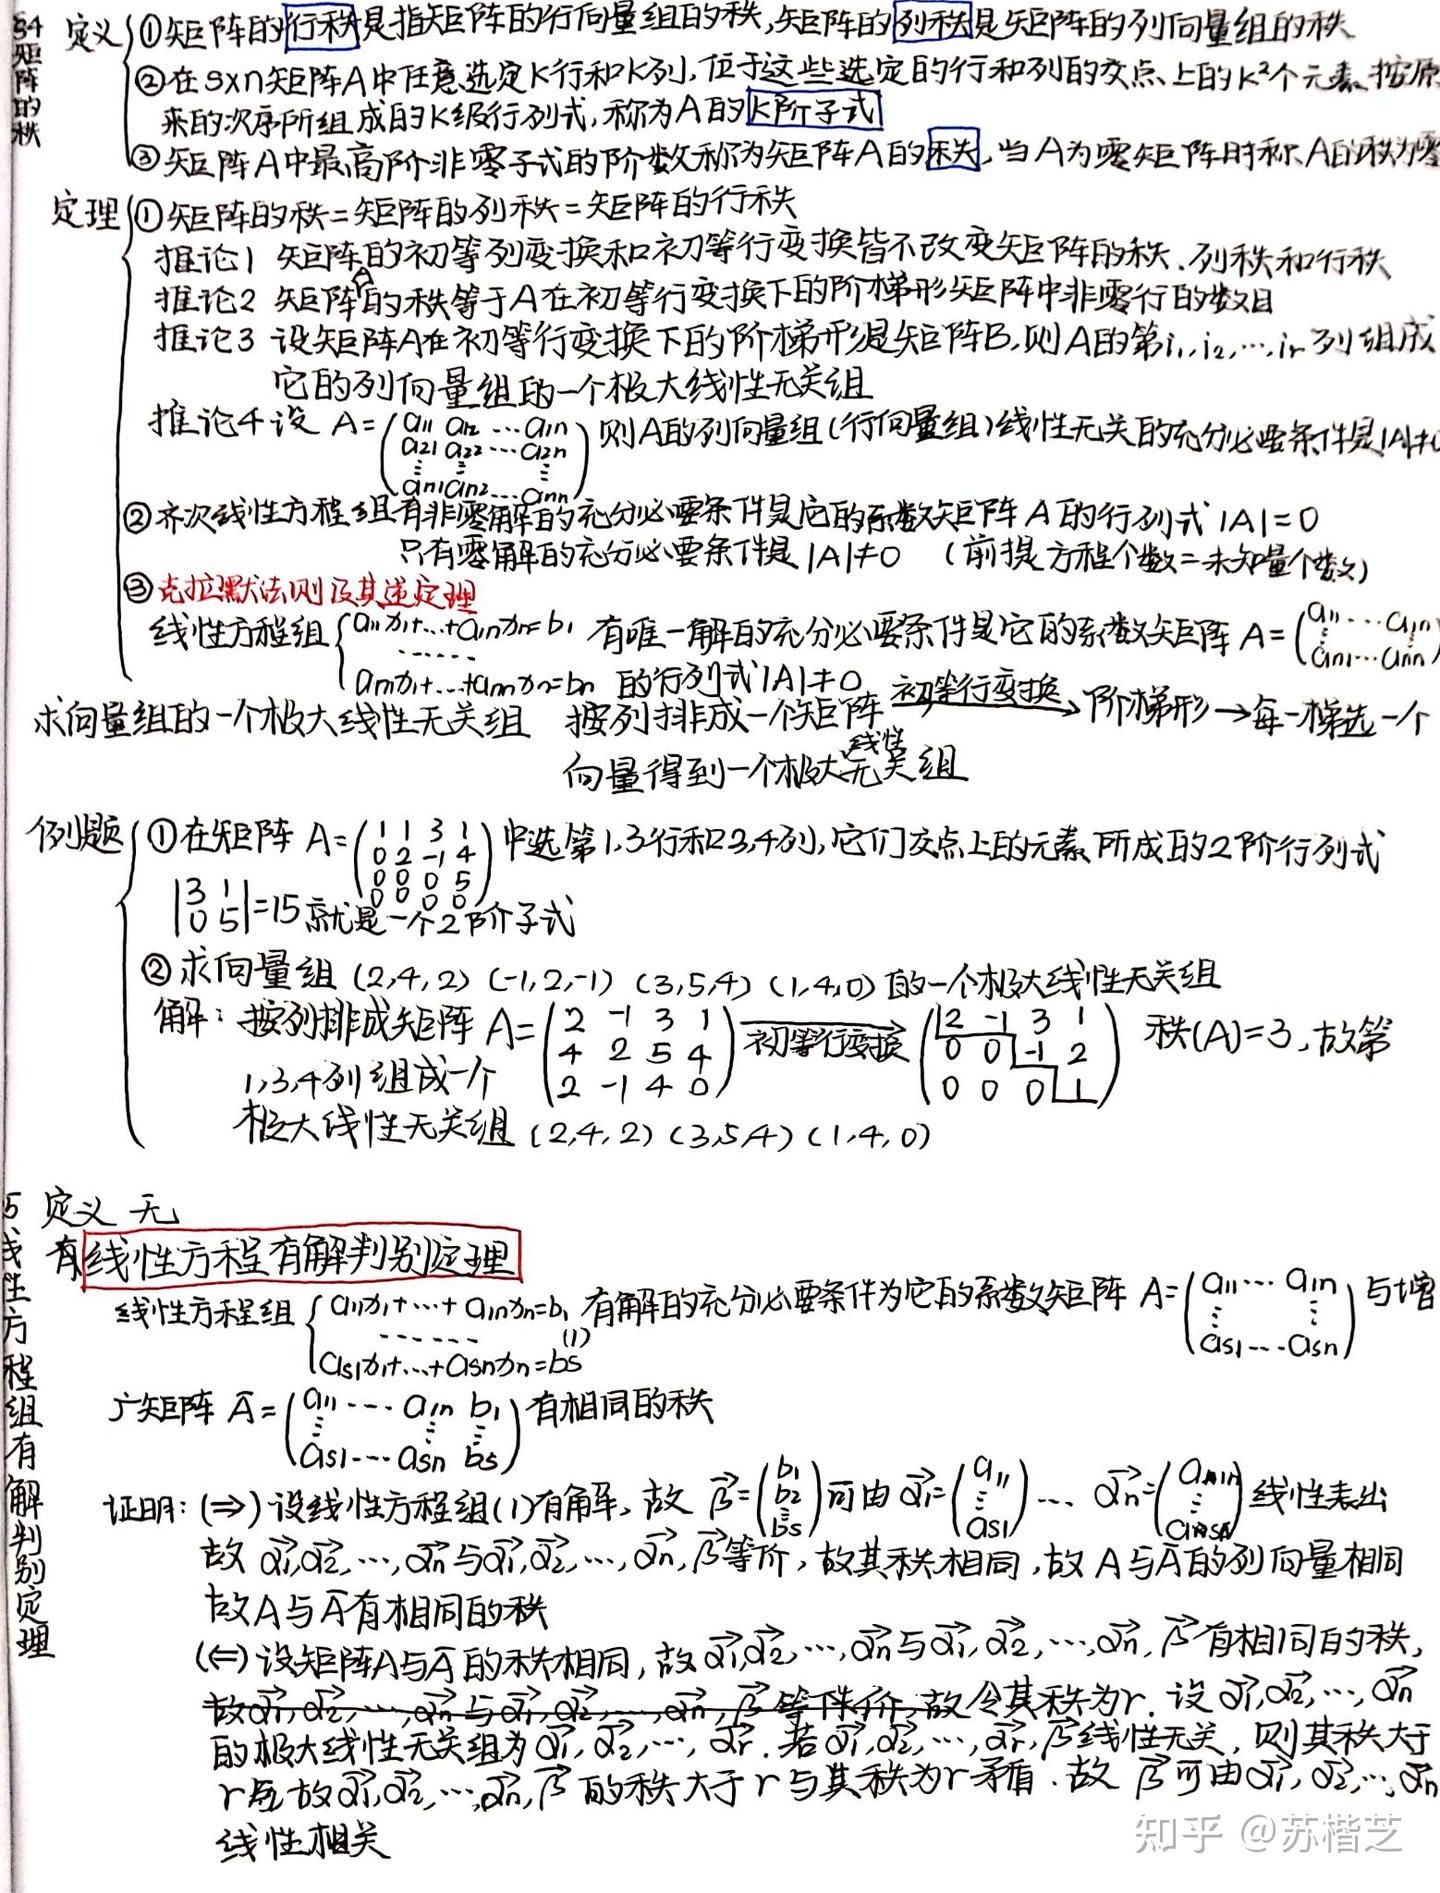 §4 矩阵的秩
定义 ①矩阵的行秩是指矩阵的行向量组的秩,矩阵的列秩是矩阵的列向量组的秩
②在s×n矩阵A中任意选定K行和K列,位于这些选定的行和列的交点上的K²个元素按原
来的次序所组成的K级行列式,称为A的K阶子式
③矩阵A中最高阶非零子式的阶数称为矩阵A的秩,当A为零矩阵时称A的秩为零
定理 ①矩阵的秩=矩阵的列秩=矩阵的行秩
推论1 矩阵的初等列变换和初等行变换皆不改变矩阵的秩、列秩和行秩
推论2 矩阵A的秩等于A在初等行变换下的阶梯形矩阵中非零行的数目
推论3 设矩阵A在初等行变换下的阶梯形是矩阵B,则A的第i₁,i₂,…,iᵣ列组成
它的列向量组的一个极大线性无关组
推论4 设 A=(a11 a12 …a1n 则A的列向量组(行向量组)线性无关的充分必要条件是|A|≠0
a21 a22 … a2n
⋮ ⋮ ⋮
an1 an2 … ann)
②齐次线性方程组有非零解的充分必要条件是它的系数矩阵A的行列式|A|=0
只有零解的充分必要条件是|A|≠0 (前提方程个数=未知量个数)
③克拉默法则及其逆定理
线性方程组{a11x1+…+a1nxn=b1 有唯一解的充分必要条件是它的系数矩阵 A=(a11 … a1n
……
⋮ ⋮
an1 … ann)
an1x1+…+annxn=bn 的行列式|A|≠0
求向量组的一个极大线性无关组 按列排成一个矩阵 初等行变换→阶梯形→每一梯选一个
向量得到一个极大线性无关组
例题 ①在矩阵 A=(1 1 3 1 中选第1,3行和3,4列,它们交点上的元素所成的2阶行列式
0 2 -1 4
0 0 0 5
0 0 0 0)
|3 1
0 5|=15就是一个2阶子式
②求向量组 (2,4,2) (-1,2,-1) (3,5,4) (1,4,0)的一个极大线性无关组
解: 按列排成矩阵 A=(2 -1 3 1 初等行变换→ (2 -1 3 1 秩(A)=3,故第
4 2 5 4 0 0 -1 2
1,3,4列组成一个 2 -1 4 0) 0 0 0 1)
极大线性无关组 (2,4,2) (3,5,4) (1,4,0)
5 线性方程组有解判别定理
定义 无
有 线性方程有解判别定理
线性方程组{a11x1+…+a1nxn=b1 有解的充分必要条件为它的系数矩阵 A=(a11 … a1n 与增
…… (1)
⋮ ⋮
as1x1+…+asnxn=bs as1 … asn)
广矩阵 Ā=(a11 … a1n b1 有相同的秩
⋮ ⋮ ⋮
as1 … asn bs)
证明: (⇒) 设线性方程组(1)有解,故 β=(b1 b2 ⋮ bs)可由α1=(a11 ⋮ as1) … αn=(a1n ⋮ asn)线性表出
故 α1,α2,…,αn与α1,α2,…,αn,β等价,故其秩相同,故A与Ā的列向量相同
故A与Ā有相同的秩
(⇐) 设矩阵A与Ā的秩相同,故α1,α2,…,αn与α1,α2,…,αn,β有相同的秩,
故α1,α2,…,αn与α1,α2,…,αn,β等价,故令其秩为r. 设α1,α2,…,αn
的极大线性无关组为α1,α2,…,αr. 若α1,α2,…,αr,β线性无关, 则其秩大于
r 故α1,α2,…,αn,β的秩大于r与其秩为r矛盾. 故β可由α1,α2,…,αn
线性相关
知乎 @苏楷芝